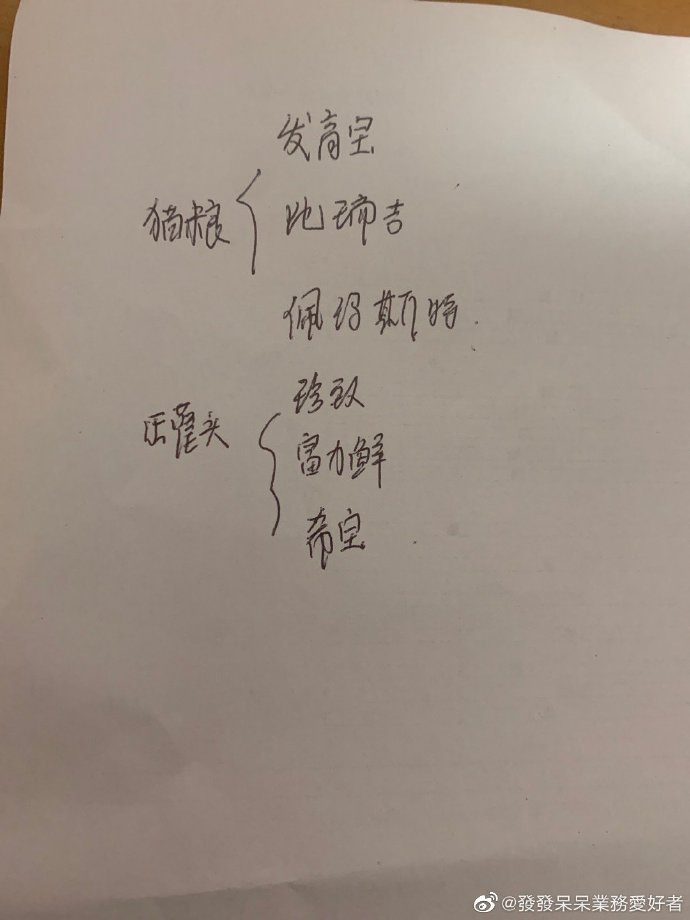 发育宝
猫粮 比瑞吉
佩玛斯特.
罐头 珍致
富力鲜
希宝
@發發呆呆業務愛好者